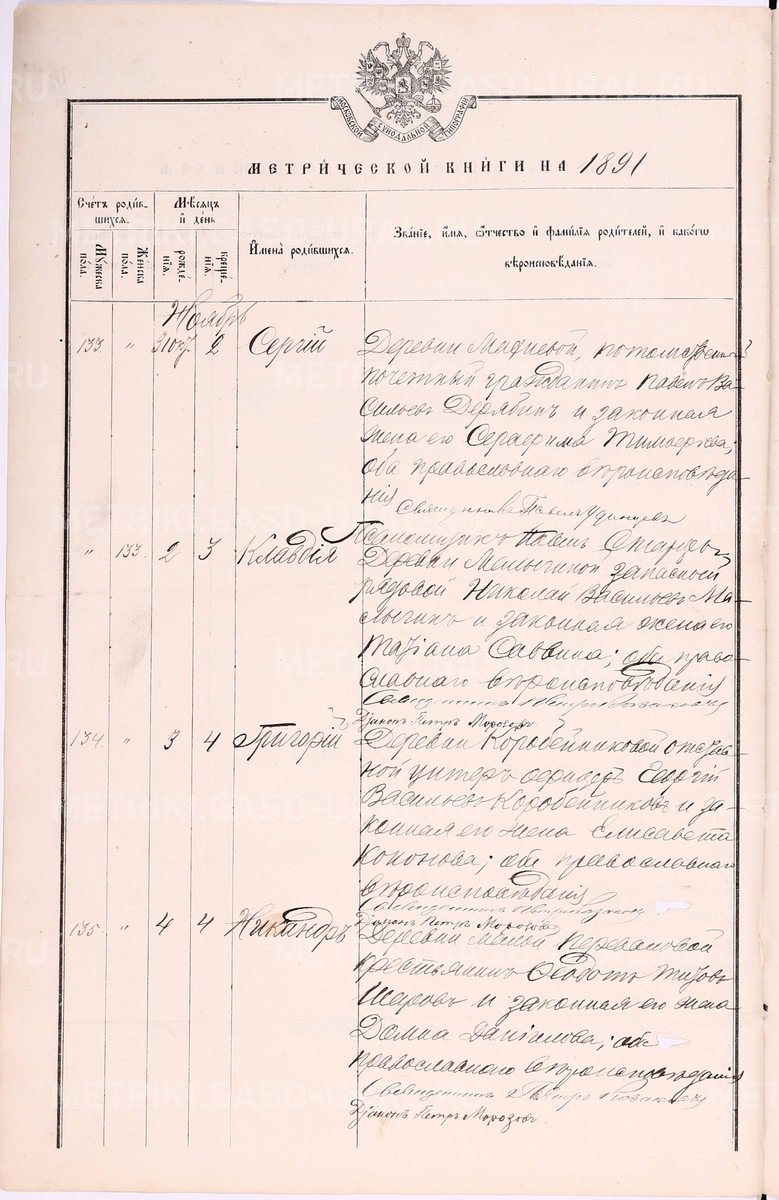 МОСКОВСКОЙ СѴНОДАЛЬНОЙ ТИПОГРАФІИ
МЕТРИ́ЧЕСКОЙ КНИ́ГИ НА 1891
Сче́тъ роди́в-
шихся.
Мꙋ́жеска по́ла.
Же́нска по́ла.
Мѣ́сяцъ и҆ де́нь
рожде́-
нїя.
креще́-
нїя.
И҆мена̀ роди́вшихся.
Зва́нїе, и҆́мя, ѻ҆́тчество и҆ фами́лїя роди́телей, и҆ како́гѡ
вѣроисповѣ́данїя.
Ноябрь
133. " 31 окт. 2 Сергій
Деревни потомственный
почетный гражданинъ Павелъ Ва-
сильевъ Дерябинъ и законная
жена его Серафима
оба православнаго вѣроисповѣда-
нія
Священникъ Павелъ Удинцевъ
Псаломщикъ Павелъ
" 133. 2 3 Клавдія
Деревни Малыгиной запасный
рядовой Николай Васильевъ Ма-
лыгинъ и законная жена его
Татіана Саввина; оба право-
славнаго вѣроисповѣданія
Священникъ Петръ
Діаконъ Петръ Морозовъ
134. " 3 4 Григорій
Деревни Коробейниковой отстав-
ной унтеръ офицеръ Георгій
Васильевъ Коробейниковъ и за-
конная его жена Елисавета
Кононова; оба православнаго
вѣроисповѣданія
Священникъ Петръ
Діаконъ Петръ Морозовъ
135. " 4 4 Никандръ
Деревни Малой
крестьянинъ Ѳеодотъ Титовъ
и законная его жена
Домна Даніилова; оба
православнаго вѣроисповѣданія
Священникъ Петръ
Діаконъ Петръ Морозовъ.